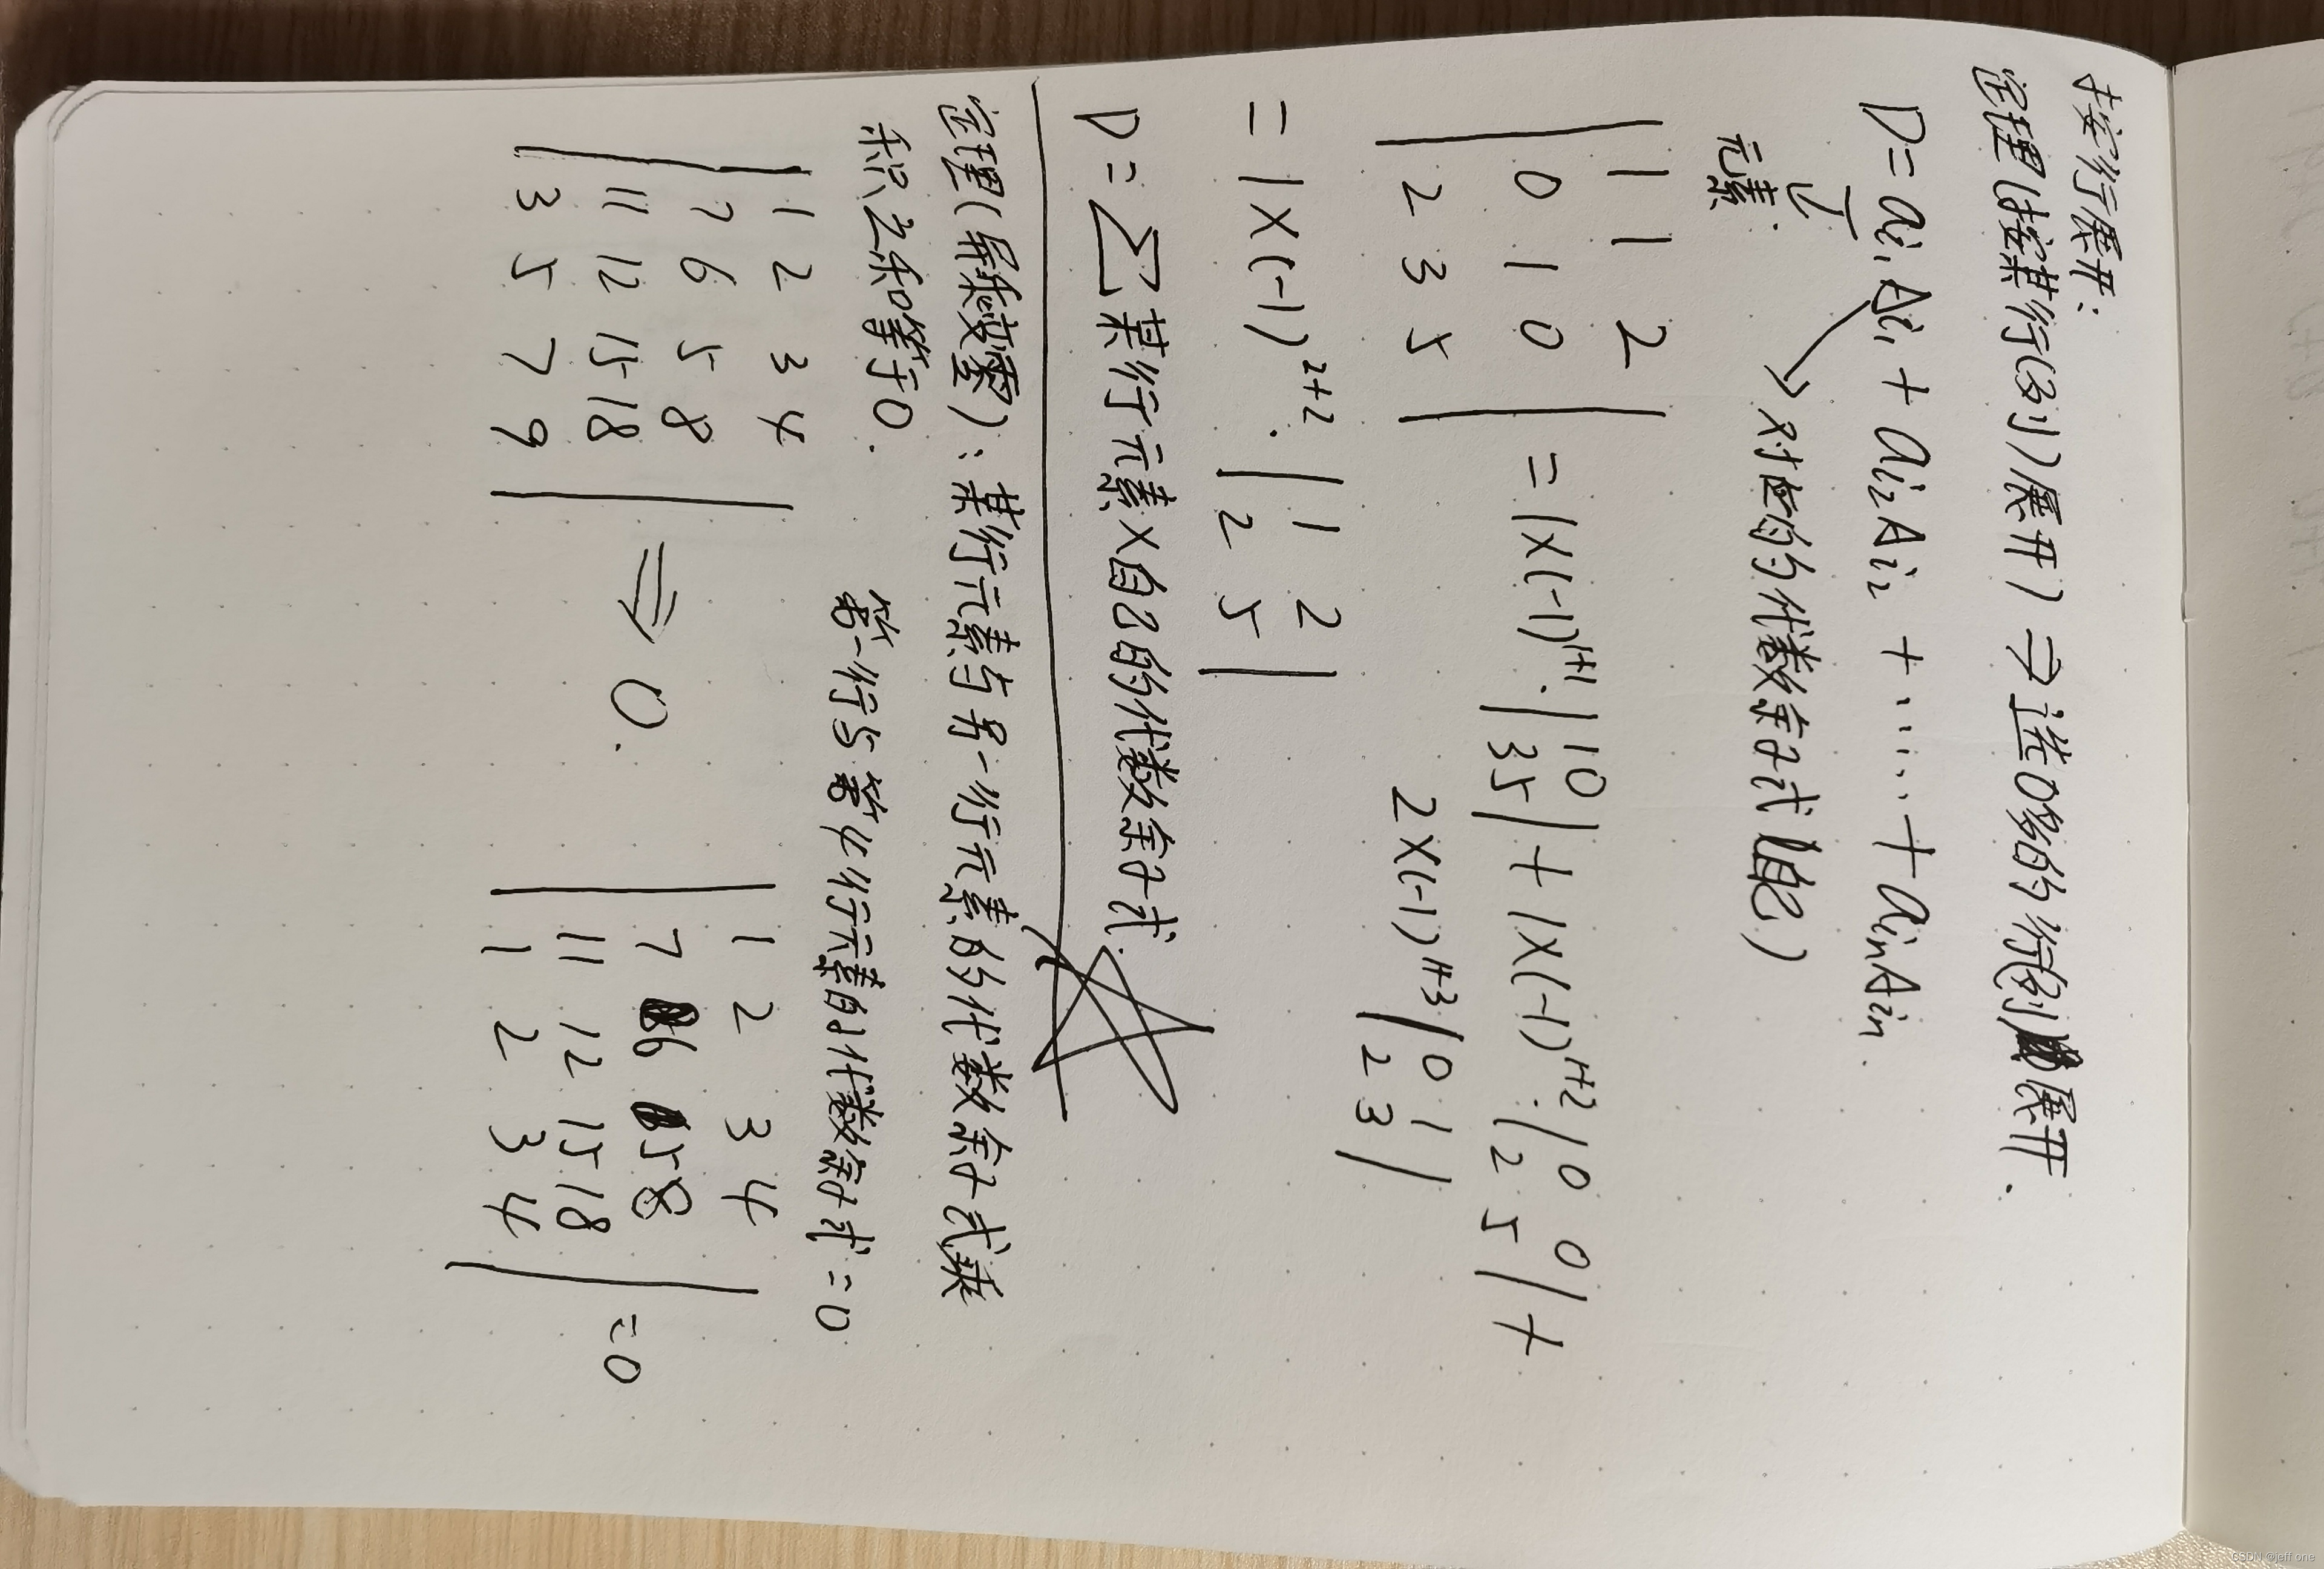 按行展开:
定理(按某行(列)展开) ⇒ 选0多的行(列)展开.
D = ai1Ai1 + ai2Ai2 + ...... + ainAin.
元素. 对应的代数余子式(值)
| 1 1 2 |
| 0 1 0 | = 1×(-1)^{1+1}·| 1 0 | + 1×(-1)^{1+2}·| 0 0 | +
| 2 3 5 | | 3 5 | | 2 5 |
2×(-1)^{1+3} | 0 1 |
| 2 3 |
= 1×(-1)^{2+2}·| 1 2 |
| 2 5 |
D = ∑某行元素×自己的代数余子式.
定理(异乘变零): 某行元素与另一行元素的代数余子式乘
积之和等于0.
第一行与第4行元素的代数余子式 = 0
| 1 2 3 4 | | 1 2 3 4 |
| 7 6 5 8 | | 7 6 5 8 |
| 11 12 15 18 | ⇒ 0. | 11 12 15 18 | = 0
| 3 5 7 9 | | 1 2 3 4 |
CSDN @jeff one